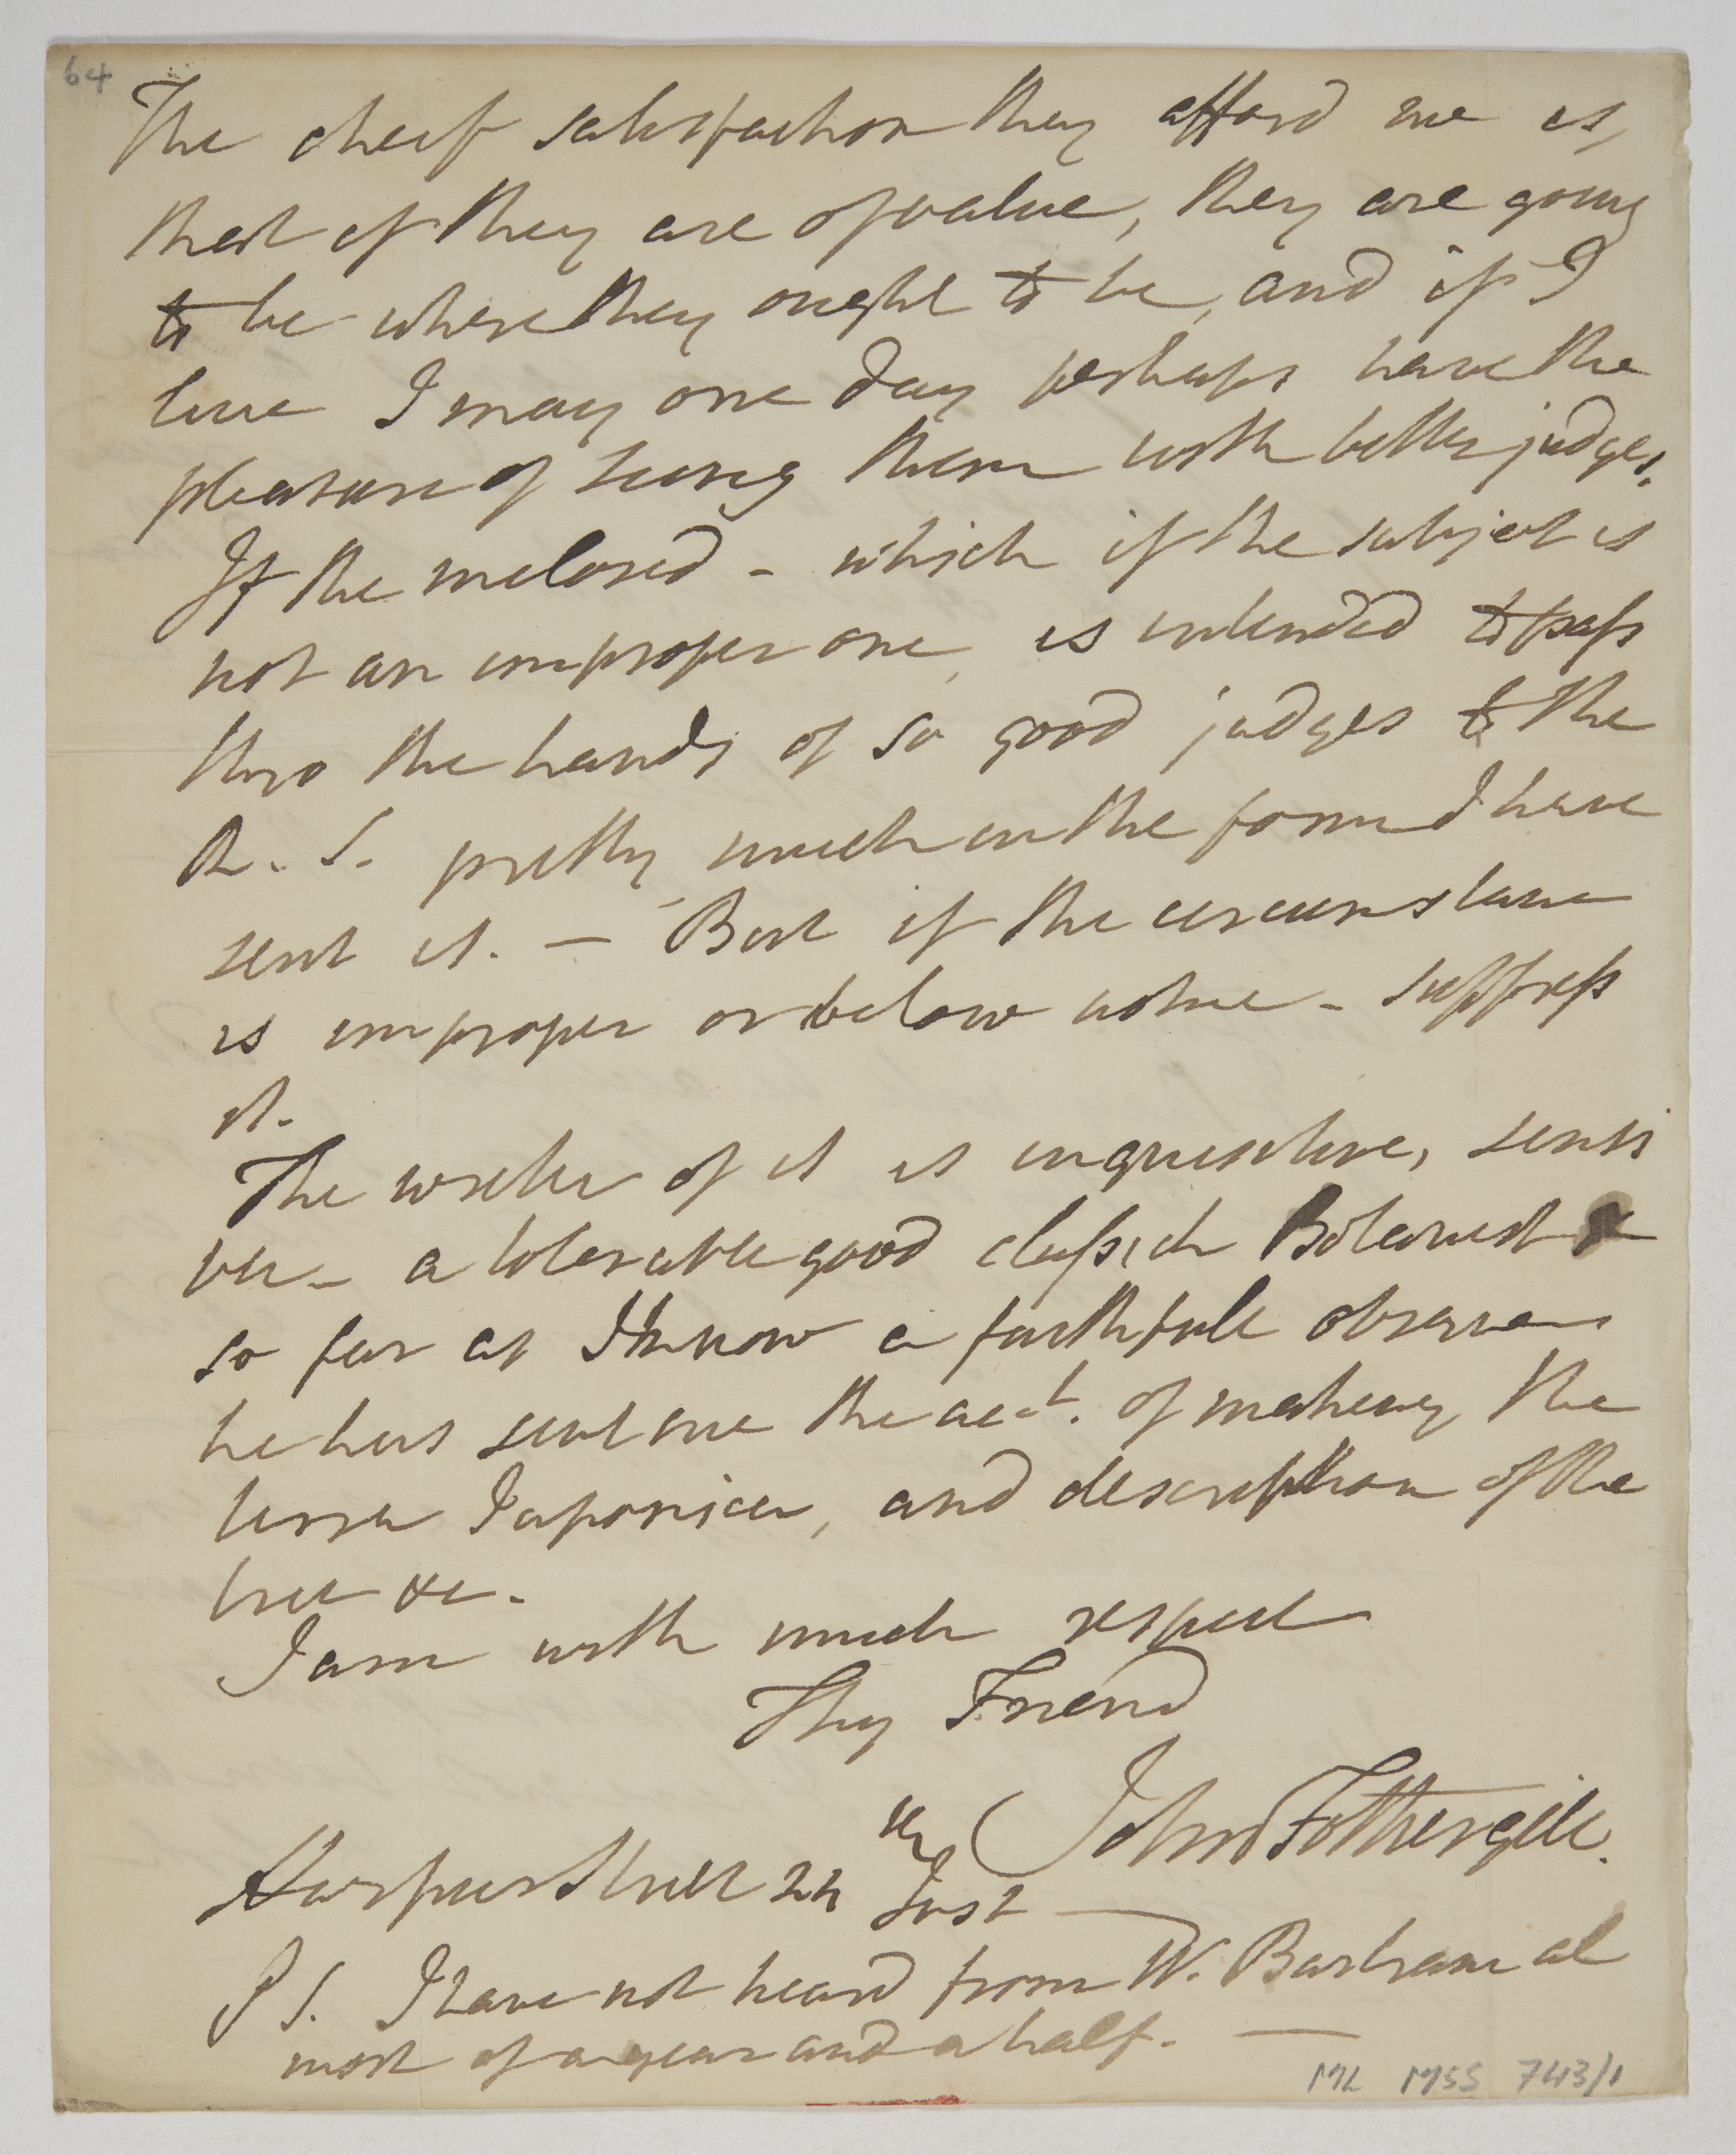 64
The cheif satisfaction they afford me is,
that if they are of value, they are going
to be where they ought to be, and if I
live I may one day perhaps have the
pleasure of seeing them with better judges.
If the inclosed - which if the subject is
not an improper one, is intended to pass
thro the hands of so good judges to the
R. S. pretty much in the form I have
sent it. — But if the circumstance
is improper or below notice - suppress
it.
The writer of it is inquisitive, sensi
ble - a tolerable good classick Botanist &
so far as I know a faithfull observer
he has sent me the acct. of makeing the
terra Japonica, and description of the
tree &c.
I am with much respect
Thy Friend
John Fothergill.
Harpur Street 24th Inst —
P S. I have not heard from W. Bartram al
most of a year and a half. —
ML MSS 743/1